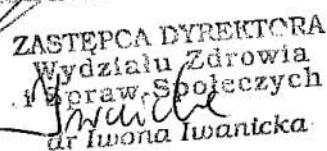 ZASTĘPCA DYREKTORA
Wydziału Zdrowia
i Spraw Społeczych
dr Iwona Iwanicka